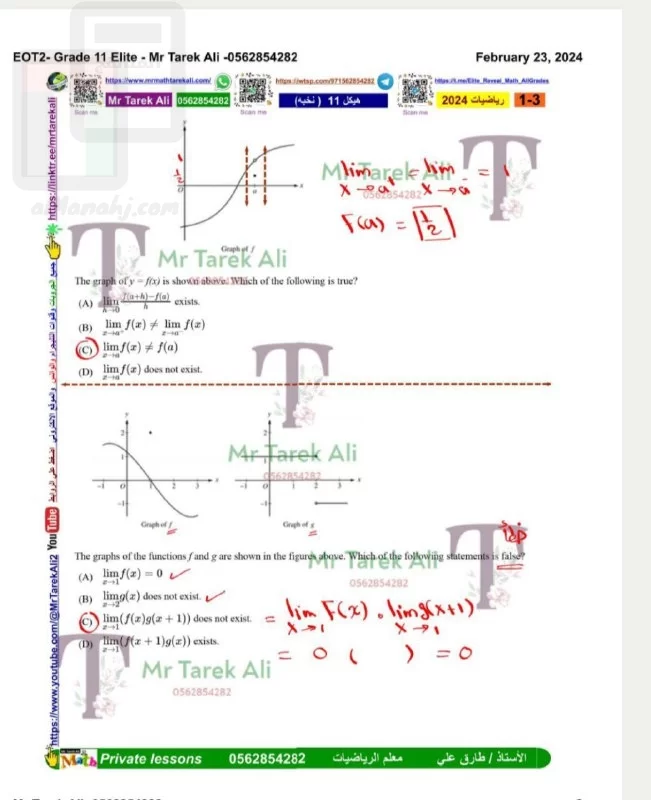 EOT2- Grade 11 Elite - Mr Tarek Ali -0562854282
February 23, 2024
https://www.mrmathtarekali.com/
https://wtsp.com/971562854282
https://t.me/Elite_Reveal_Math_AllGrades
Mr Tarek Ali 0562854282
هيكل 11 ( نخبه)
رياضيات 2024
1-3
Scan me
Scan me
Scan me
https://linktr.ee/mrtarekali
almanahj.com
Mr Tarek Ali
0562854282
lim = lim = 1
x→a x→a
F(a) = 1/2
y
x
0
a
1
1/2
Graph of f
Mr Tarek Ali
0562854282
The graph of y = f(x) is shown above. Which of the following is true?
(A) lim h→0 f(a+h)−f(a)/h exists.
(B) lim x→a⁻ f(x) ≠ lim x→a⁺ f(x)
(C) lim x→a f(x) ≠ f(a)
(D) lim x→a f(x) does not exist.
Mr Tarek Ali
0562854282
y
2
-1 0 1 2 3 x
-1
Graph of f
y
2
1
-1 0 1 2 3 x
-1
Graph of g
The graphs of the functions f and g are shown in the figures above. Which of the following statements is false?
Mr Tarek Ali
0562854282
(A) lim x→1 f(x) = 0
(B) lim x→2 g(x) does not exist.
(C) lim x→1 (f(x)g(x + 1)) does not exist.
= lim F(x) . lim g(x+1)
x→1 x→1
(D) lim x→1 (f(x + 1)g(x)) exists.
= 0 ( ) = 0
Mr Tarek Ali
0562854282
https://www.youtube.com/@MrTarekAli2 YouTube
Math Private lessons
0562854282
معلم الرياضيات
الأستاذ / طارق علي